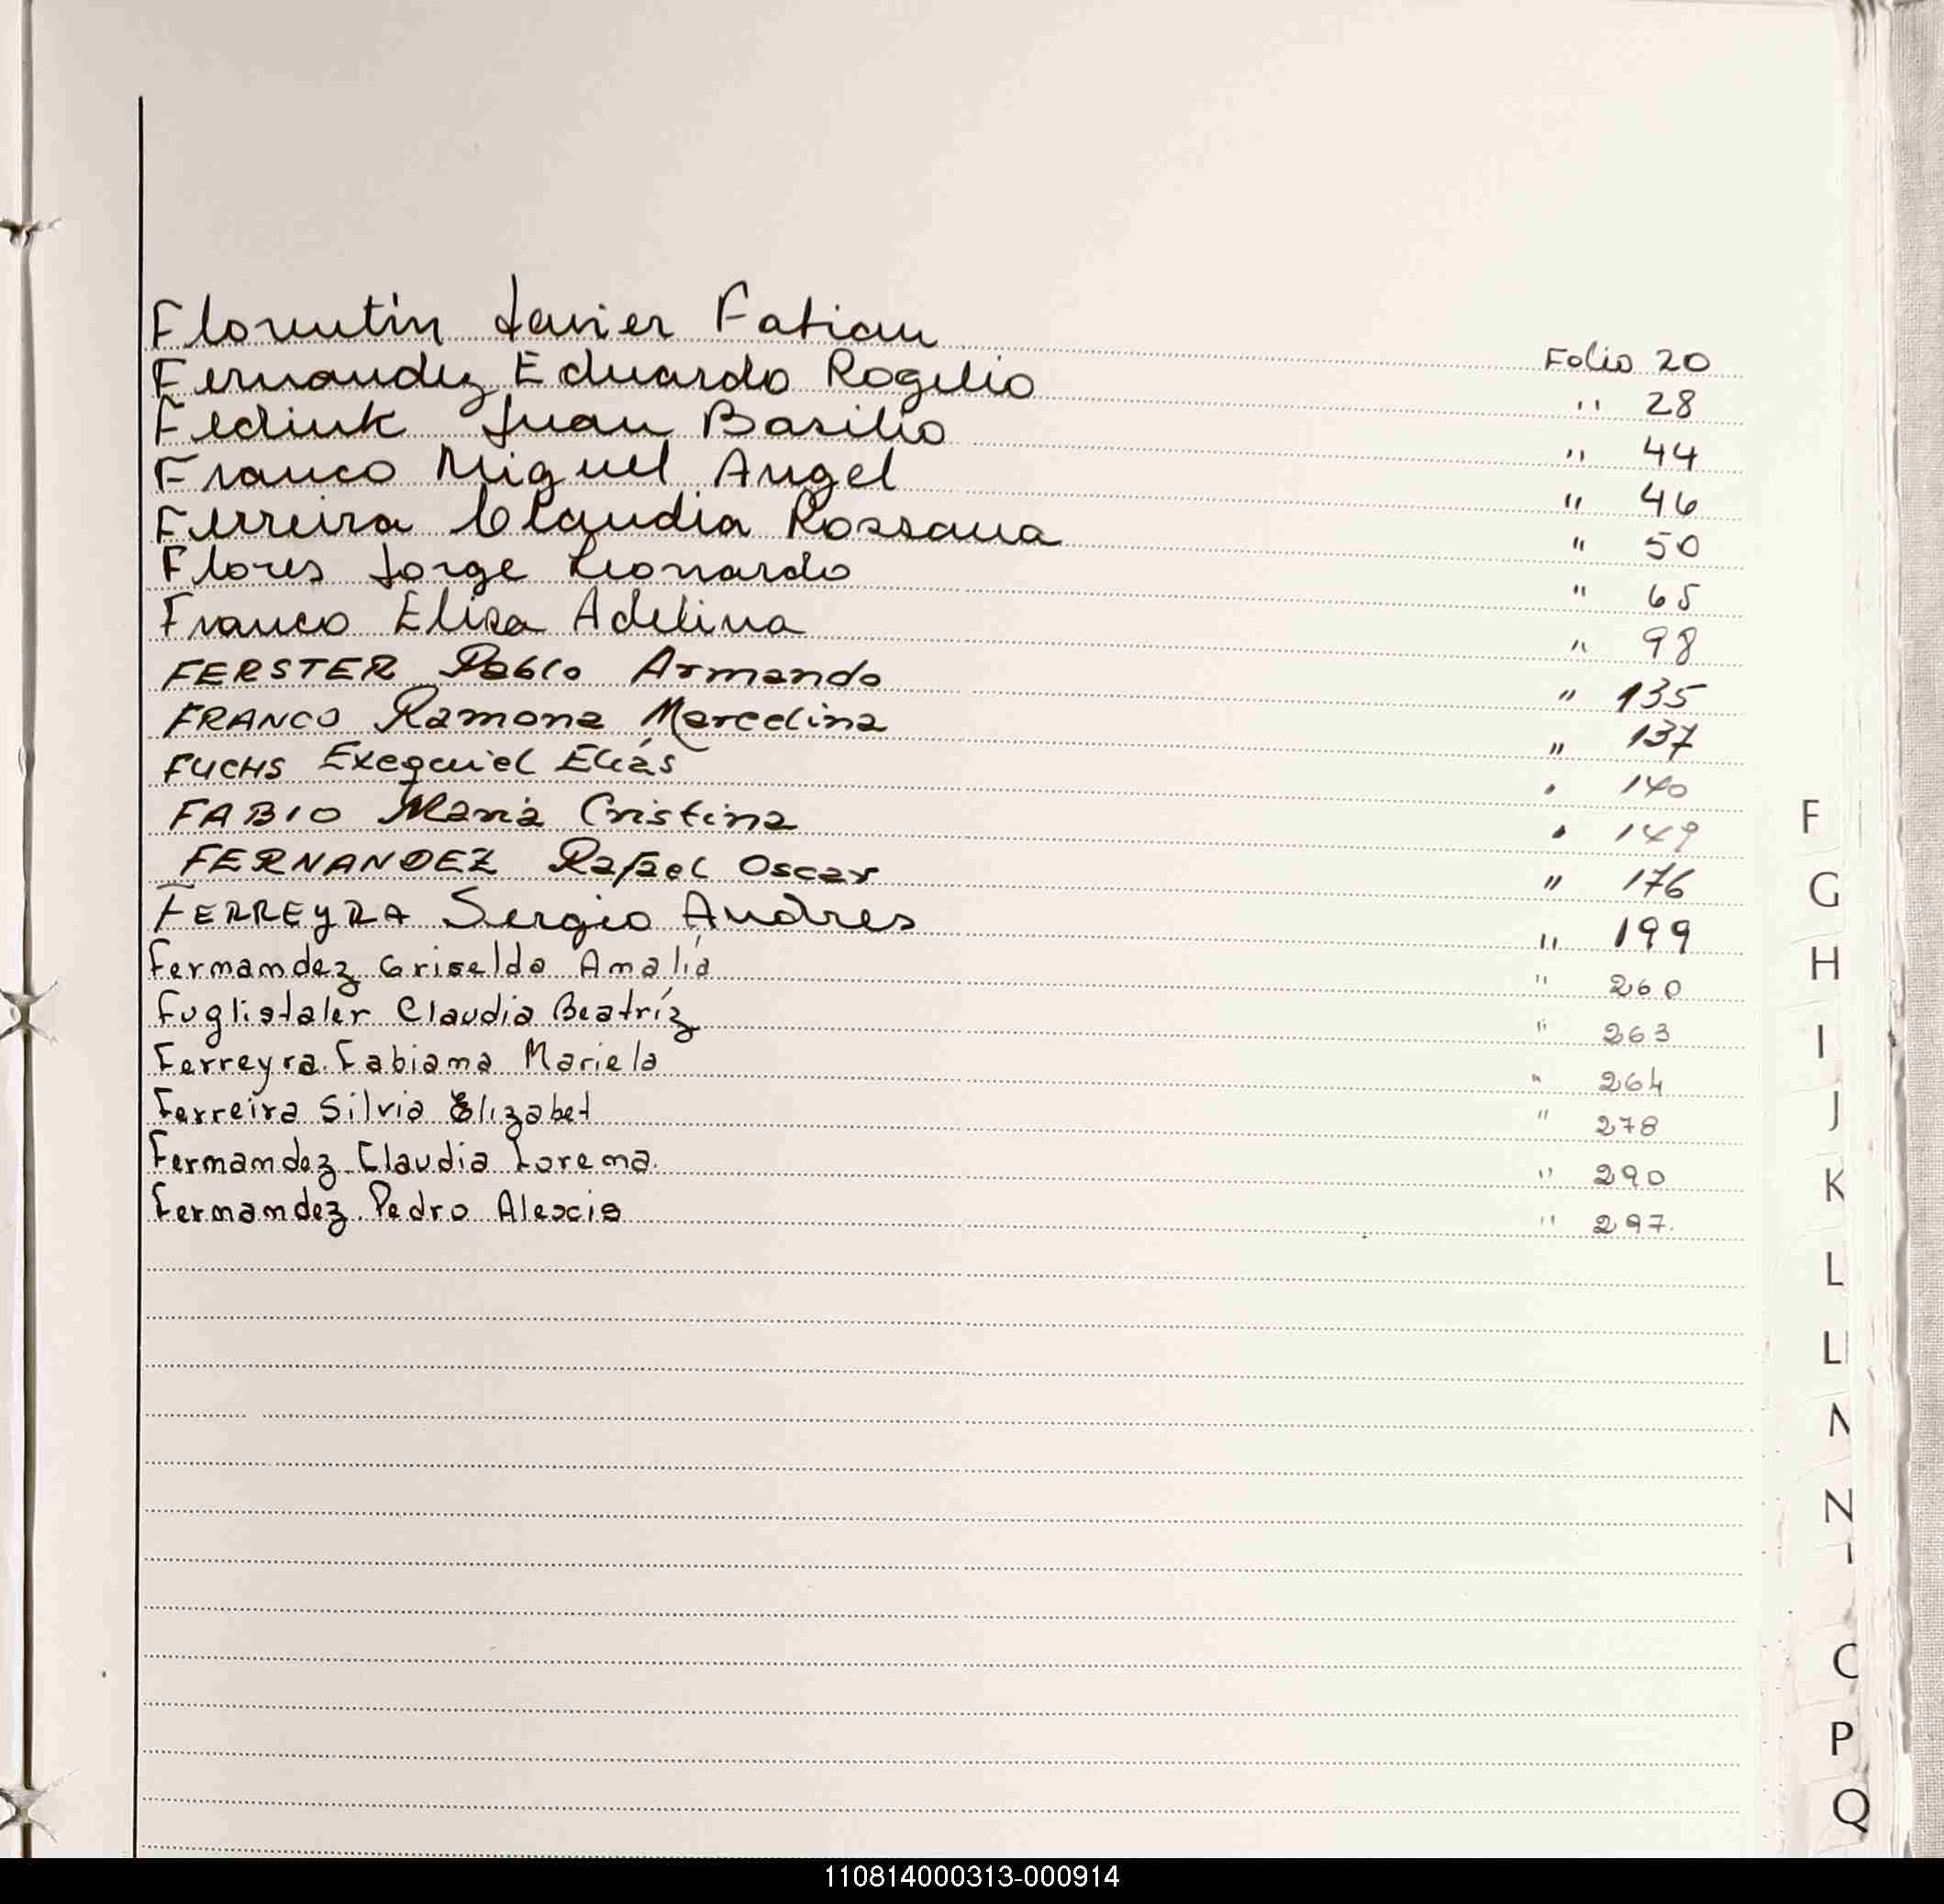 Florentín Javier Fabian Folio 20
Fernandez Eduardo Rogelio " 28
Fediuk Juan Basilio " 44
Franco Miguel Angel " 46
Ferreira Claudia Rossana " 50
Flores Jorge Leonardo " 65
Franco Elisa Adelina " 98
FERSTER Pablo Armando " 135
FRANCO Ramona Marcelina " 137
FUCHS Exequiel Elías " 140
FABIO María Cristina " 149
FERNANDEZ Rafael Oscar " 176
FERREYRA Sergio Andres " 199
Fernandez Griselda Amalia " 260
Fuglistaler Claudia Beatríz " 263
Ferreyra Fabiana Mariela " 264
Ferreira Silvia Elizabet " 278
Fernandez Claudia Lorena " 290
Fernandez Pedro Alexcis " 297
F
G
H
I
J
K
L
L
N
C
P
Q
110814000313-000914